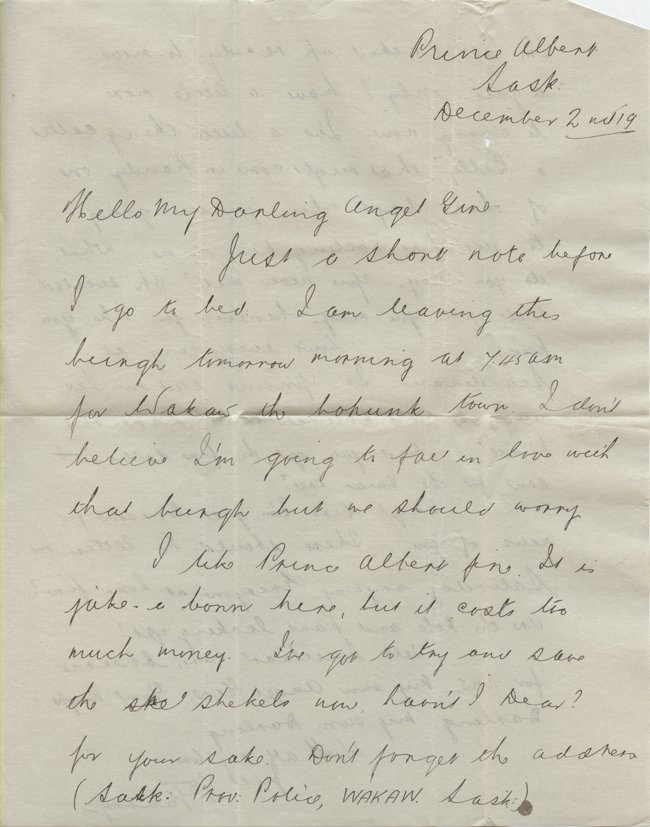 Prince Albert
Sask:
December 2nd 19
Hello My Darling Angel Girl
Just a short note before
I go to bed. I am leaving this
beurgh tomorrow morning at 7.45 am
for Wakaw the bohunk town. I don't
believe I'm going to fall in love with
that burgh but we should worry
I like Prince Albert fine. It is
jake-a bonn here, but it costs too
much money. I've got to try and save
the shekels now, havn't I Dear?
for your sake. Don't forget the address
(Sask: Prov: Police, WAKAW. Sask:)